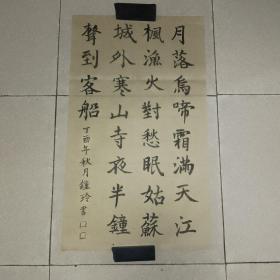 月落烏啼霜滿天江
楓漁火對愁眠姑蘇
城外寒山寺夜半鐘
聲到客船
丁酉年秋月鐘玲書